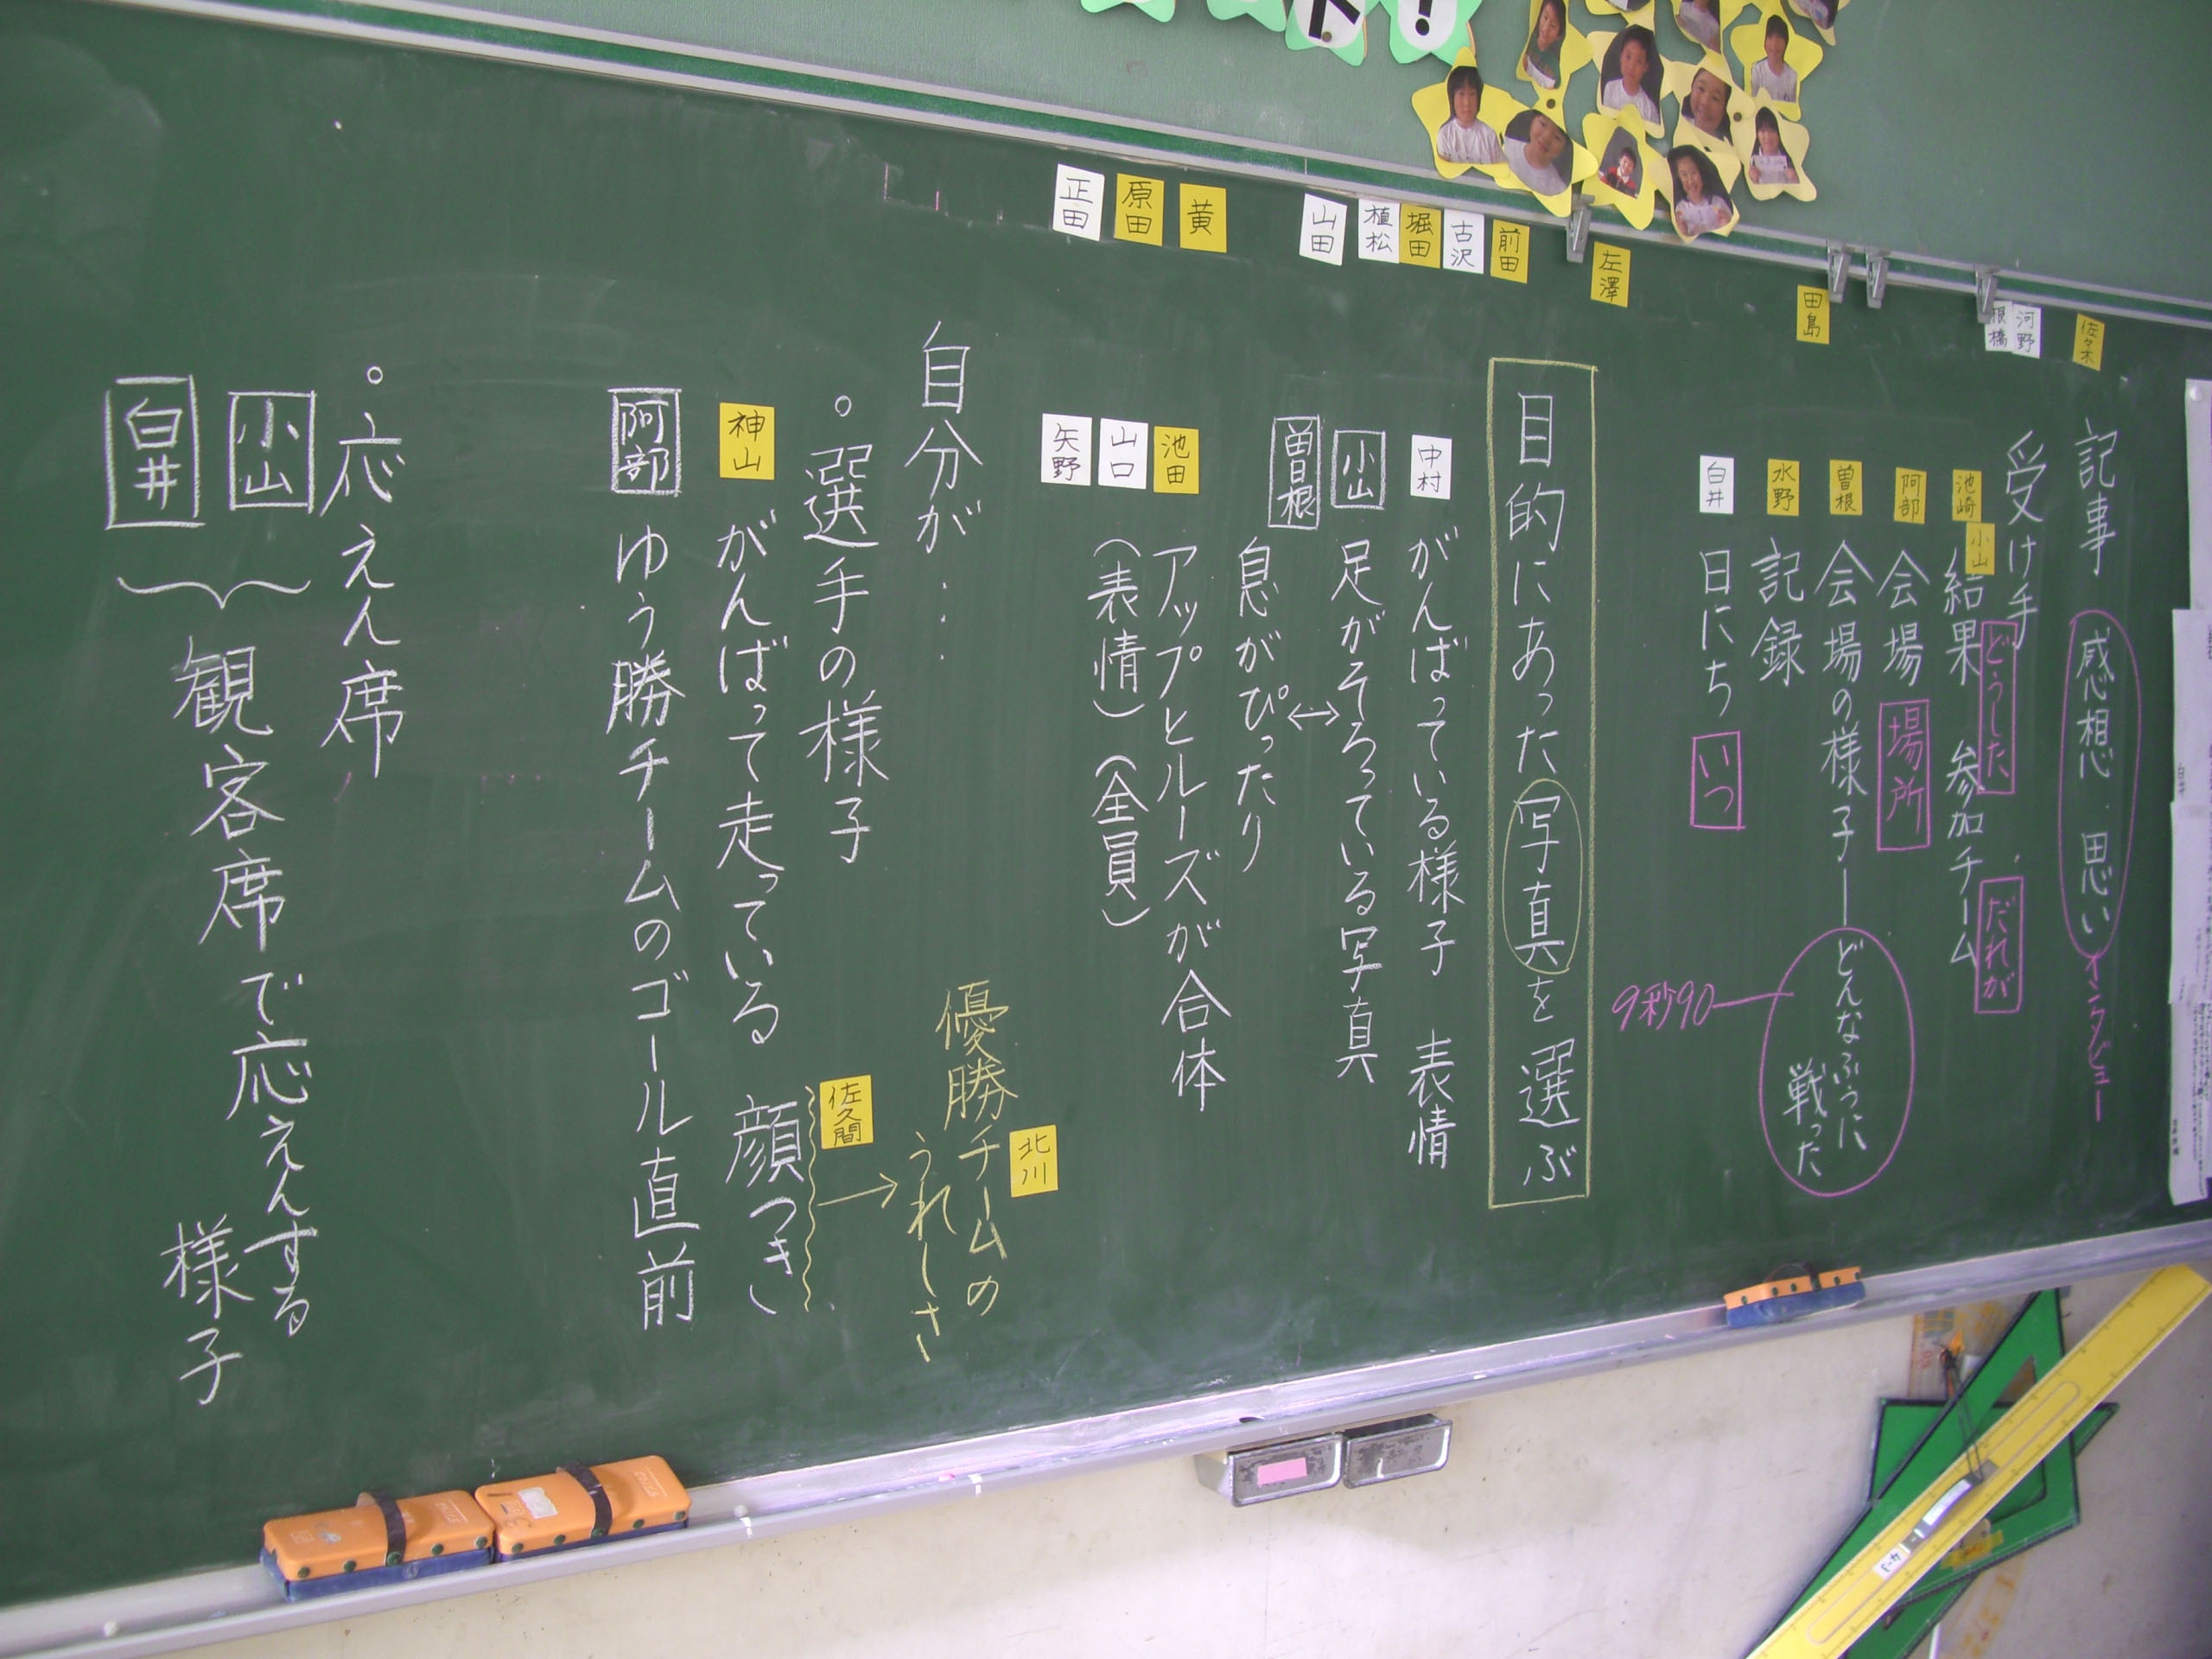 ト!
佐々木
河野
根橋
田島
左澤
前田
古沢
堀田
植松
山田
黄
原田
正田
記事 感想・思い インタビュー
受け手
池崎
小山
結果 どうした 参加チーム だれが
阿部
会場 場所
曽根
会場の様子ーどんなふうに
戦った
9秒90
水野
記録
白井
日にち いつ
目的にあった写真を選ぶ
中村
がんばっている様子 表情
小山
足がそろっている写真
↔
曽根
息がぴったり
池田
アップとルーズが合体
山口
矢野
(表情)(全員)
自分が・・・
北川
優勝チームの
うれしさ
。選手の様子
佐久間
神山
がんばって走っている 顔つき
阿部
ゆう勝チームのゴール直前
。応えん席
小山
白井
観客席で応えんする
様子